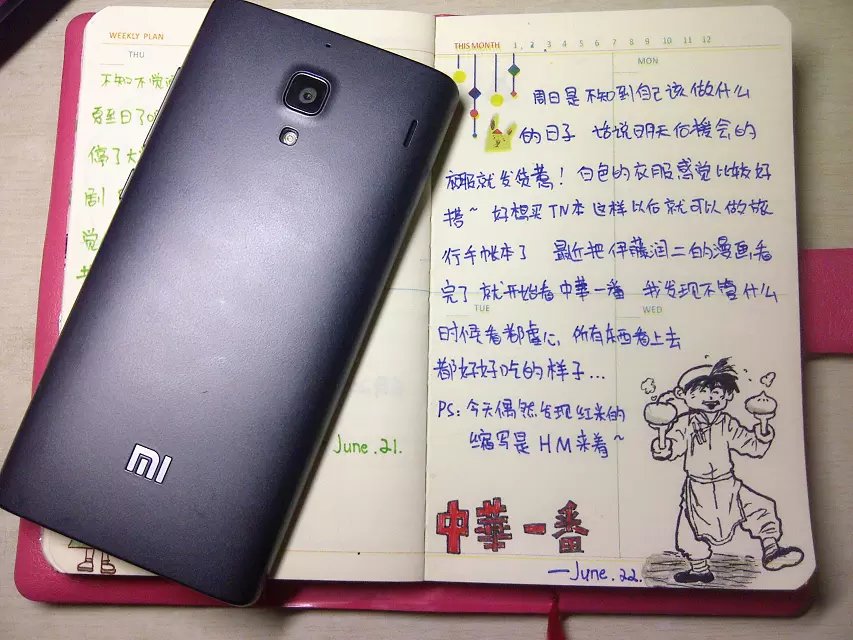 WEEKLY PLAN
THU
不知不觉
夏至日了
停了大
剧
觉
June.21.
MI
THIS MONTH 1 2 3 4 5 6 7 8 9 10 11 12
MON
周日是不知到自己该做什么
的日子 话说明天估摸会的
衣服就发货惹！白色的衣服感觉比较好
搭~ 好想买TN本 这样以后就可以做旅
行手帐本了 最近把伊藤润二的漫画看
完了 就开始看中華一番 我发现不管什么
TUE
WED
时候看都虐心，所有东西看上去
都好好吃的样子...
PS: 今天偶然发现红米的
缩写是HM来着~
中華一番
—June.22.